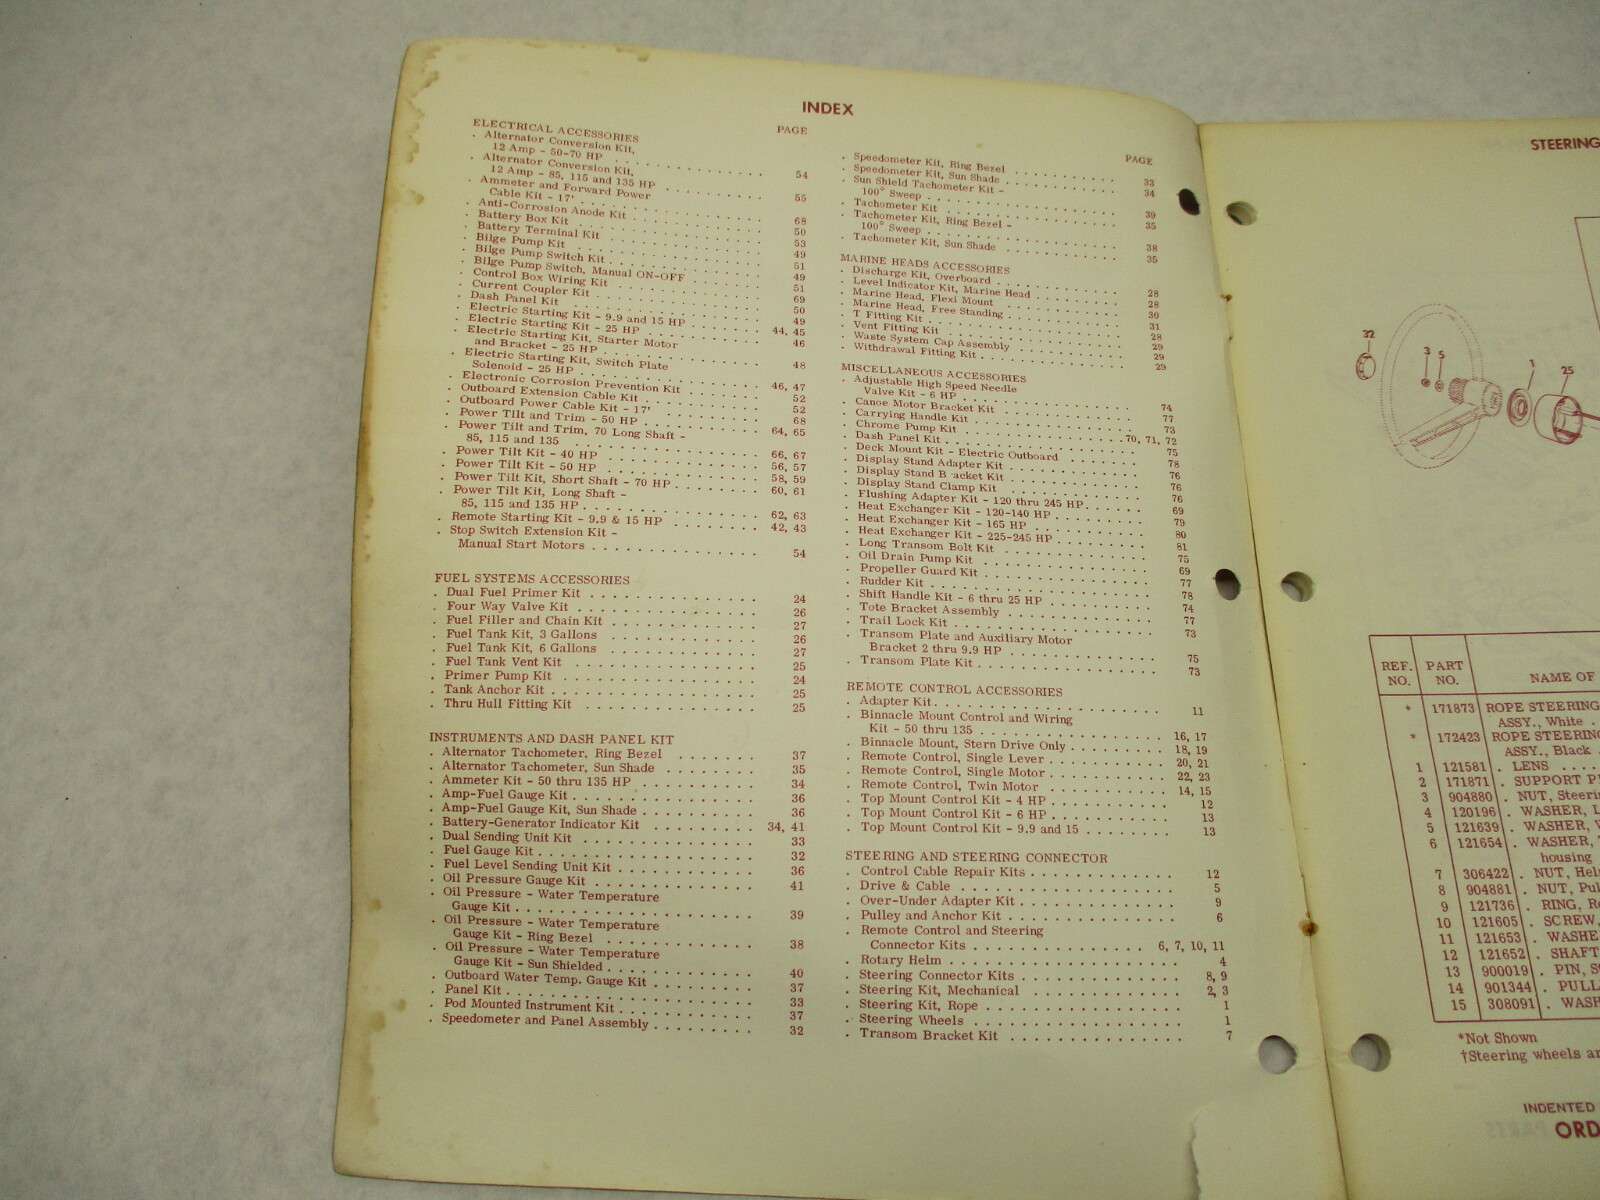 INDEX
PAGE
ELECTRICAL ACCESSORIES
. Alternator Conversion Kit,
12 Amp - 50-70 HP . . . . . . . . . . 54
. Alternator Conversion Kit,
12 Amp - 85, 115 and 135 HP . . . . . . . . 55
. Ammeter and Forward Power
Cable Kit - 17' . . . . . . . . . . 68
. Anti-Corrosion Anode Kit . . . . . . . . 50
. Battery Box Kit . . . . . . . . . . 53
. Battery Terminal Kit . . . . . . . . . . 49
. Bilge Pump Kit . . . . . . . . . . 51
. Bilge Pump Switch Kit . . . . . . . . . . 49
. Bilge Pump Switch, Manual ON-OFF . . . . . . 51
. Control Box Wiring Kit . . . . . . . . . . 69
. Current Coupler Kit . . . . . . . . . . 50
. Dash Panel Kit . . . . . . . . . . 49
. Electric Starting Kit - 9.9 and 15 HP . . . . . . . 44, 45
. Electric Starting Kit - 25 HP . . . . . . . . 46
. Electric Starting Kit, Starter Motor
and Bracket - 25 HP . . . . . . . . . . 48
. Electric Starting Kit, Switch Plate
Solenoid - 25 HP . . . . . . . . . . 46, 47
. Electronic Corrosion Prevention Kit . . . . . . 52
. Outboard Extension Cable Kit . . . . . . . . 52
. Outboard Power Cable Kit - 17' . . . . . . . . 68
. Power Tilt and Trim - 50 HP . . . . . . . . 64, 65
. Power Tilt and Trim, 70 Long Shaft -
85, 115 and 135 . . . . . . . . . . 66, 67
. Power Tilt Kit - 40 HP . . . . . . . . . . 56, 57
. Power Tilt Kit - 50 HP . . . . . . . . . . 58, 59
. Power Tilt Kit, Short Shaft - 70 HP . . . . . . . . 60, 61
. Power Tilt Kit, Long Shaft -
85, 115 and 135 HP . . . . . . . . . . 62, 63
. Remote Starting Kit - 9.9 & 15 HP . . . . . . . . 42, 43
. Stop Switch Extension Kit -
Manual Start Motors . . . . . . . . . . 54
FUEL SYSTEMS ACCESSORIES
. Dual Fuel Primer Kit . . . . . . . . . . 24
. Four Way Valve Kit . . . . . . . . . . 26
. Fuel Filler and Chain Kit . . . . . . . . . . 27
. Fuel Tank Kit, 3 Gallons . . . . . . . . . . 26
. Fuel Tank Kit, 6 Gallons . . . . . . . . . . 27
. Fuel Tank Vent Kit . . . . . . . . . . 25
. Primer Pump Kit . . . . . . . . . . 24
. Tank Anchor Kit . . . . . . . . . . 25
. Thru Hull Fitting Kit . . . . . . . . . . 25
INSTRUMENTS AND DASH PANEL KIT
. Alternator Tachometer, Ring Bezel . . . . . . . 37
. Alternator Tachometer, Sun Shade . . . . . . . 35
. Ammeter Kit - 50 thru 135 HP . . . . . . . . 34
. Amp-Fuel Gauge Kit . . . . . . . . . . 36
. Amp-Fuel Gauge Kit, Sun Shade . . . . . . . . 36
. Battery-Generator Indicator Kit . . . . . . . . 34, 41
. Dual Sending Unit Kit . . . . . . . . . . 33
. Fuel Gauge Kit . . . . . . . . . . 32
. Fuel Level Sending Unit Kit . . . . . . . . . . 36
. Oil Pressure Gauge Kit . . . . . . . . . . 41
. Oil Pressure - Water Temperature
Gauge Kit . . . . . . . . . . 39
. Oil Pressure - Water Temperature
Gauge Kit - Ring Bezel . . . . . . . . . . 38
. Oil Pressure - Water Temperature
Gauge Kit - Sun Shielded . . . . . . . . . . 40
. Outboard Water Temp. Gauge Kit . . . . . . . . 37
. Panel Kit . . . . . . . . . . 33
. Pod Mounted Instrument Kit . . . . . . . . . . 37
. Speedometer and Panel Assembly . . . . . . . . 32
PAGE
. Speedometer Kit, Ring Bezel . . . . . . . . . . 33
. Speedometer Kit, Sun Shade . . . . . . . . . . 34
. Sun Shield Tachometer Kit -
100° Sweep . . . . . . . . . . 39
. Tachometer Kit . . . . . . . . . . 35
. Tachometer Kit, Ring Bezel -
100° Sweep . . . . . . . . . . 38
. Tachometer Kit, Sun Shade . . . . . . . . . . 35
MARINE HEADS ACCESSORIES
. Discharge Kit, Overboard . . . . . . . . . . 28
. Level Indicator Kit, Marine Head . . . . . . . . 28
. Marine Head, Flexi Mount . . . . . . . . . . 30
. Marine Head, Free Standing . . . . . . . . . . 31
. T Fitting Kit . . . . . . . . . . 28
. Vent Fitting Kit . . . . . . . . . . 29
. Waste System Cap Assembly . . . . . . . . . . 29
. Withdrawal Fitting Kit . . . . . . . . . . 29
MISCELLANEOUS ACCESSORIES
. Adjustable High Speed Needle
Valve Kit - 6 HP . . . . . . . . . . 74
. Canoe Motor Bracket Kit . . . . . . . . . . 77
. Carrying Handle Kit . . . . . . . . . . 73
. Chrome Pump Kit . . . . . . . . . . 70, 71, 72
. Dash Panel Kit . . . . . . . . . . 75
. Deck Mount Kit - Electric Outboard . . . . . . . 78
. Display Stand Adapter Kit . . . . . . . . . . 76
. Display Stand B acket Kit . . . . . . . . . . 76
. Display Stand Clamp Kit . . . . . . . . . . 76
. Flushing Adapter Kit - 120 thru 245 HP . . . . . . 69
. Heat Exchanger Kit - 120-140 HP . . . . . . . . 79
. Heat Exchanger Kit - 165 HP . . . . . . . . . . 80
. Heat Exchanger Kit - 225-245 HP . . . . . . . . 81
. Long Transom Bolt Kit . . . . . . . . . . 75
. Oil Drain Pump Kit . . . . . . . . . . 69
. Propeller Guard Kit . . . . . . . . . . 77
. Rudder Kit . . . . . . . . . . 78
. Shift Handle Kit - 6 thru 25 HP . . . . . . . . . . 74
. Tote Bracket Assembly . . . . . . . . . . 77
. Trail Lock Kit . . . . . . . . . . 73
. Transom Plate and Auxiliary Motor
Bracket 2 thru 9.9 HP . . . . . . . . . . 75
. Transom Plate Kit . . . . . . . . . . 73
REMOTE CONTROL ACCESSORIES
. Adapter Kit . . . . . . . . . . 11
. Binnacle Mount Control and Wiring
Kit - 50 thru 135 . . . . . . . . . . 16, 17
. Binnacle Mount, Stern Drive Only . . . . . . . . 18, 19
. Remote Control, Single Lever . . . . . . . . . . 20, 21
. Remote Control, Single Motor . . . . . . . . . . 22, 23
. Remote Control, Twin Motor . . . . . . . . . . 14, 15
. Top Mount Control Kit - 4 HP . . . . . . . . . . 12
. Top Mount Control Kit - 6 HP . . . . . . . . . . 13
. Top Mount Control Kit - 9.9 and 15 . . . . . . . . 13
STEERING AND STEERING CONNECTOR
. Control Cable Repair Kits . . . . . . . . . . 12
. Drive & Cable . . . . . . . . . . 5
. Over-Under Adapter Kit . . . . . . . . . . 9
. Pulley and Anchor Kit . . . . . . . . . . 6
. Remote Control and Steering
Connector Kits . . . . . . . . . . 6, 7, 10, 11
. Rotary Helm . . . . . . . . . . 4
. Steering Connector Kits . . . . . . . . . . 8, 9
. Steering Kit, Mechanical . . . . . . . . . . 2, 3
. Steering Kit, Rope . . . . . . . . . . 1
. Steering Wheels . . . . . . . . . . 1
. Transom Bracket Kit . . . . . . . . . . 7
STEERING
32 3 5 1 25
REF. NO. PART NO. NAME OF
* 171873 ROPE STEERING
ASSY., White .
* 172423 ROPE STEERING
ASSY., Black
1 121581 . LENS . . . .
2 171871 . SUPPORT
3 904880 . NUT,
4 120196 . WASHER,
5 121639 . WASHER,
6 121654 . WASHER,
housing
7 306422 . NUT,
8 904881 . NUT,
9 121736 . RING,
10 121605 . SCREW,
11 121653 .
12 121652 . SHAFT
13 900019 . PIN,
14 901344 .
15 308091 .
*Not Shown
†Steering wheels
INDENTED